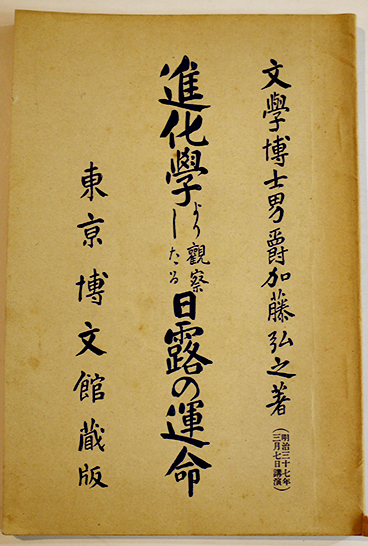 文學博士男爵加藤弘之著
（明治三十七年
三月七日講演）
進化學より觀察したる日露の運命
東京博文館蔵版